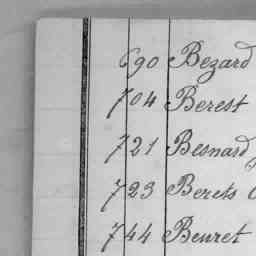 690 Bezard
704 Berest
721 Besnard
723 Berets
744 Beuret